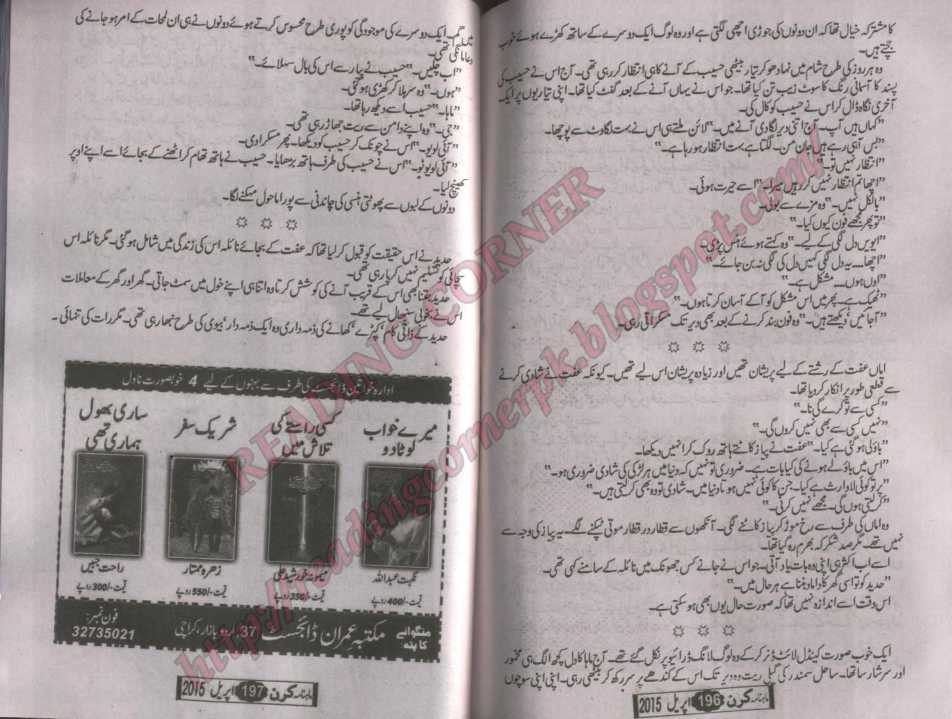 کا مشترکہ خیال تھا کہ ان دونوں کی جوڑی اچھی لگتی ہے اور وہ لوگ ایک دوسرے کے ساتھ کھڑے ہوئے خوب
جچتے ہیں۔
وہ ہر روز کی طرح شام میں نہا دھو کر تیار بیٹھی حسیب کے آنے کا ہی انتظار کر رہی تھی۔ آج اس نے حسیب کی
پسند کا آسمانی رنگ کا سوٹ زیب تن کیا تھا۔ جو اس نے یہاں آنے کے بعد گفٹ کیا تھا۔ اپنی تیاریوں پر ایک
آخری نگاہ ڈال کر اس نے حسیب کو کال کی۔
"کہاں ہیں آپ۔ آج اتنی دیر لگا دی آنے میں۔" لائن ملتے ہی اس نے بہت لگاوٹ سے پوچھا۔
"بس آہی رہے ہیں جان من۔ لگتا ہے بہت انتظار ہو رہا ہے۔"
"انتظار نہیں تو۔"
"اچھا تم انتظار نہیں کر رہیں میرا۔" اسے حیرت ہوئی۔
"بالکل نہیں۔" وہ مزے سے بولی۔
"تو پھر مجھے فون کیوں کیا۔"
"ایویں دل لگی کے لیے۔" وہ کہتے ہوئے ہنس پڑی۔
"اچھا۔۔۔ یہ دل لگی کہیں دل کی لگی نہ بن جائے۔"
"اوں ہوں۔۔۔ مشکل ہے۔"
"ٹھیک ہے۔ پھر میں اس مشکل کو آکے آسان کرتا ہوں۔"
"آجائیں، دیکھتے ہیں۔" وہ فون بند کرنے کے بعد بھی دیر تک مسکراتی رہی۔
اماں عفت کے رشتے کے لیے پریشان تھیں اور زیادہ پریشان اس لیے تھیں۔ کیونکہ عفت نے شادی کرنے
سے قطعی طور پر انکار کر دیا تھا۔
"کسی سے تو کرے گی نا۔"
"نہیں کسی سے بھی نہیں کروں گی۔"
"باؤلی ہو گئی ہے کیا۔" عفت نے پیاز کاٹتے ہاتھ روک کر انہیں دیکھا۔
"اس میں باؤلے ہونے کی کیا بات ہے۔ ضروری تو نہیں کہ دنیا میں ہر لڑکی کی شادی ضروری ہو۔"
"پر تو کوئی لاوارث ہے کیا۔ جن کا کوئی نہیں ہوتا دنیا میں۔ شادی تو وہ بھی کر لیتی ہیں۔"
"کر لیتی ہوں گی۔ مجھے نہیں کرنی۔"
وہ اماں کی طرف سے رخ موڑ کر پیاز کاٹنے لگی۔ آنکھوں سے قطار در قطار موتی ٹپکنے لگے۔ یہ پیاز کی وجہ سے
نہیں تھے۔ مگر صد شکر کہ بھرم رہ گیا تھا۔
اسے اب اکثر ہی اپنی وہ بات یاد آتی۔ جو اس نے جانے کس جھونک میں نائلہ کے سامنے کہی تھی۔
"حدید کو تو اسی گھر کا داماد بننا ہے ہر حال میں۔"
اس وقت اسے اندازہ نہیں تھا کہ صورت حال یوں بھی ہو سکتی ہے۔
ایک خوب صورت کینڈل لائٹ ڈنر کر کے وہ لوگ لانگ ڈرائیو پر نکل گئے تھے۔ آج ماہا کا دل کچھ الگ ہی مخمور
اور سرشار سا تھا۔ ساحل سمندر کی گیلی ریت پہ وہ دیر تک اس کے کندھے پر سر رکھ کر بیٹھی رہی۔ اپنی اپنی سوچوں
ماہنامہ کرن 196 اپریل 2015
میں گم۔ ایک دوسرے کی موجودگی کو پوری طرح محسوس کرتے ہوئے دونوں نے ہی ان لمحات کے امر ہو جانے کی
دعا مانگی تھی۔
"اب چلیں۔" حسیب نے پیار سے اس کی بال سہلائے۔
"ہوں۔" وہ سر ہلا کر کھڑی ہو گئی۔
"ماہا۔" حسیب اسے دیکھ رہا تھا۔
"جی۔" وہ اپنے دامن سے ریت جھاڑ رہی تھی۔
"آئی لو یو۔" اس نے چونک کر حسیب کو دیکھا۔ پھر مسکرا دی۔
"آئی لو یو ٹو۔" اس نے حسیب کی طرف ہاتھ بڑھایا۔ حسیب نے ہاتھ تھام کر اٹھنے کے بجائے اسے اپنے اوپر
کھینچ لیا۔
دونوں کے لبوں سے پھوٹتی ہنسی کی چاندنی سے پورا ماحول مہکنے لگا۔
حدید نے اس حقیقت کو قبول کر لیا تھا کہ عفت کے بجائے نائلہ اس کی زندگی میں شامل ہو گئی۔ مگر نائلہ اس
سچائی کو تسلیم نہیں کر پا رہی تھی۔
حدید جتنا بھی اس کے قریب آنے کی کوشش کرتا وہ اتنا ہی اپنے خول میں سمٹ جاتی۔ گھر اور گھر کے معاملات
اس نے بخوبی سنبھال لیے تھے۔
حدید کے ذاتی کام، کپڑے، کھانے کی ذمہ داری وہ ایک ذمہ دار بیوی کی طرح نبھا رہی تھی۔ مگر رات کی تنہائی۔
ادارہ خواتین ڈائجسٹ کی طرف سے بہنوں کے لیے 4 خوبصورت ناول
میرے خواب لوٹا دو
نگہت عبداللہ
قیمت -/400 روپے
کسی راستے کی تلاش میں
میمونہ خورشید علی
قیمت -/350 روپے
شریک سفر
زہرہ ممتاز
قیمت -/550 روپے
ساری بھول ہماری تھی
راحت جبیں
قیمت -/300 روپے
منگوانے کا پتہ
مکتبہ عمران ڈائجسٹ 37، اردو بازار، کراچی
فون نمبر:
32735021
ماہنامہ کرن 197 اپریل 2015
READING CORNER
http://readingcornerpk.blogspot.com/